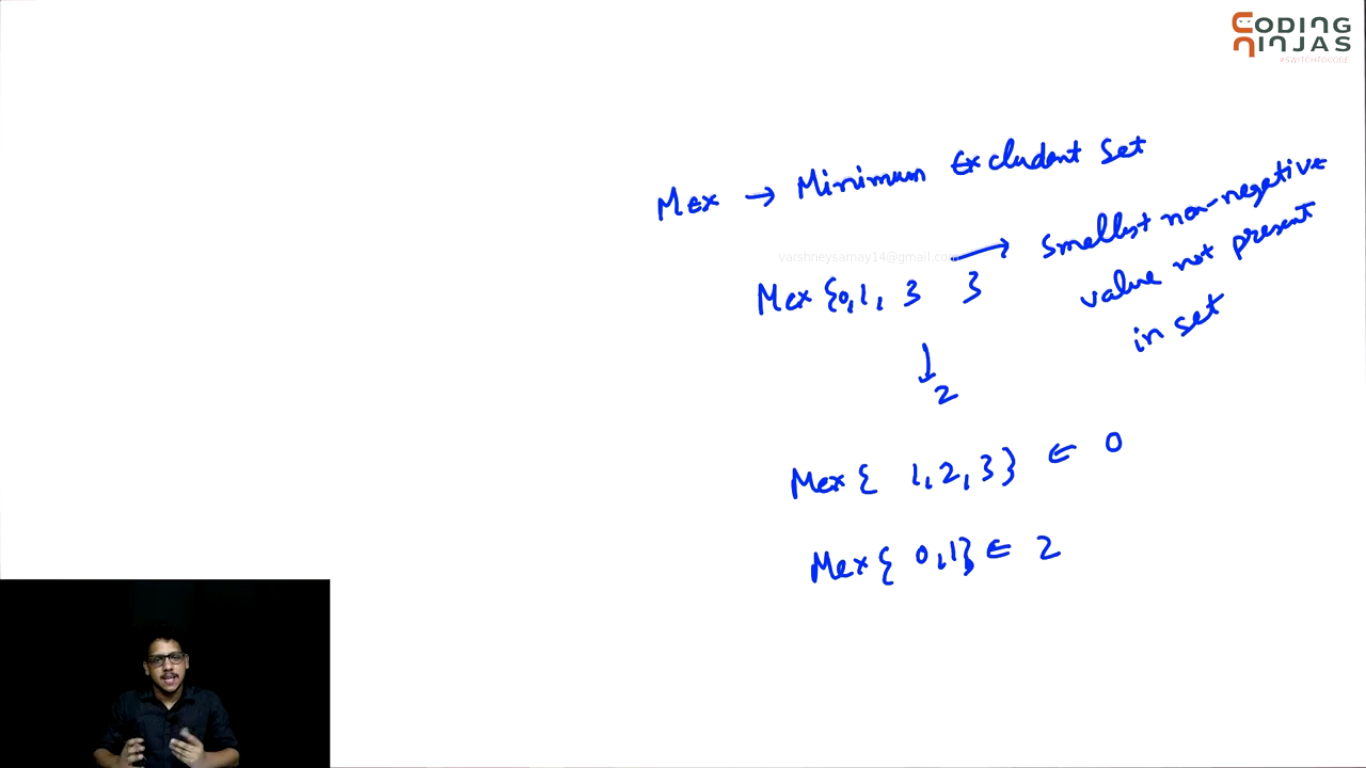 CODING
NINJAS
#SWITCHTOCODE
Mex → Minimum Excludent Set
varshneysamay14@gmail.com
Mex {0,1, 3 } → smallest non-negative
value not present
in set
↓
2
Mex { 1,2,3} ← 0
Mex { 0,1} ← 2